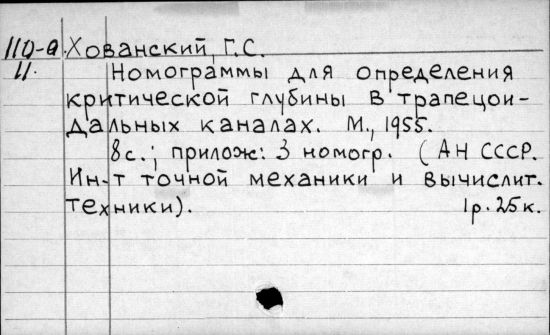 110-а. Хованский, Г.С.
11. Номограммы для определения
критической глубины в трапецои-
дальных каналах. М., 1955.
8с.; прилож: 3 номогр. (АН СССР.
Ин-т точной механики и вычислит.
техники). 1р. 25к.